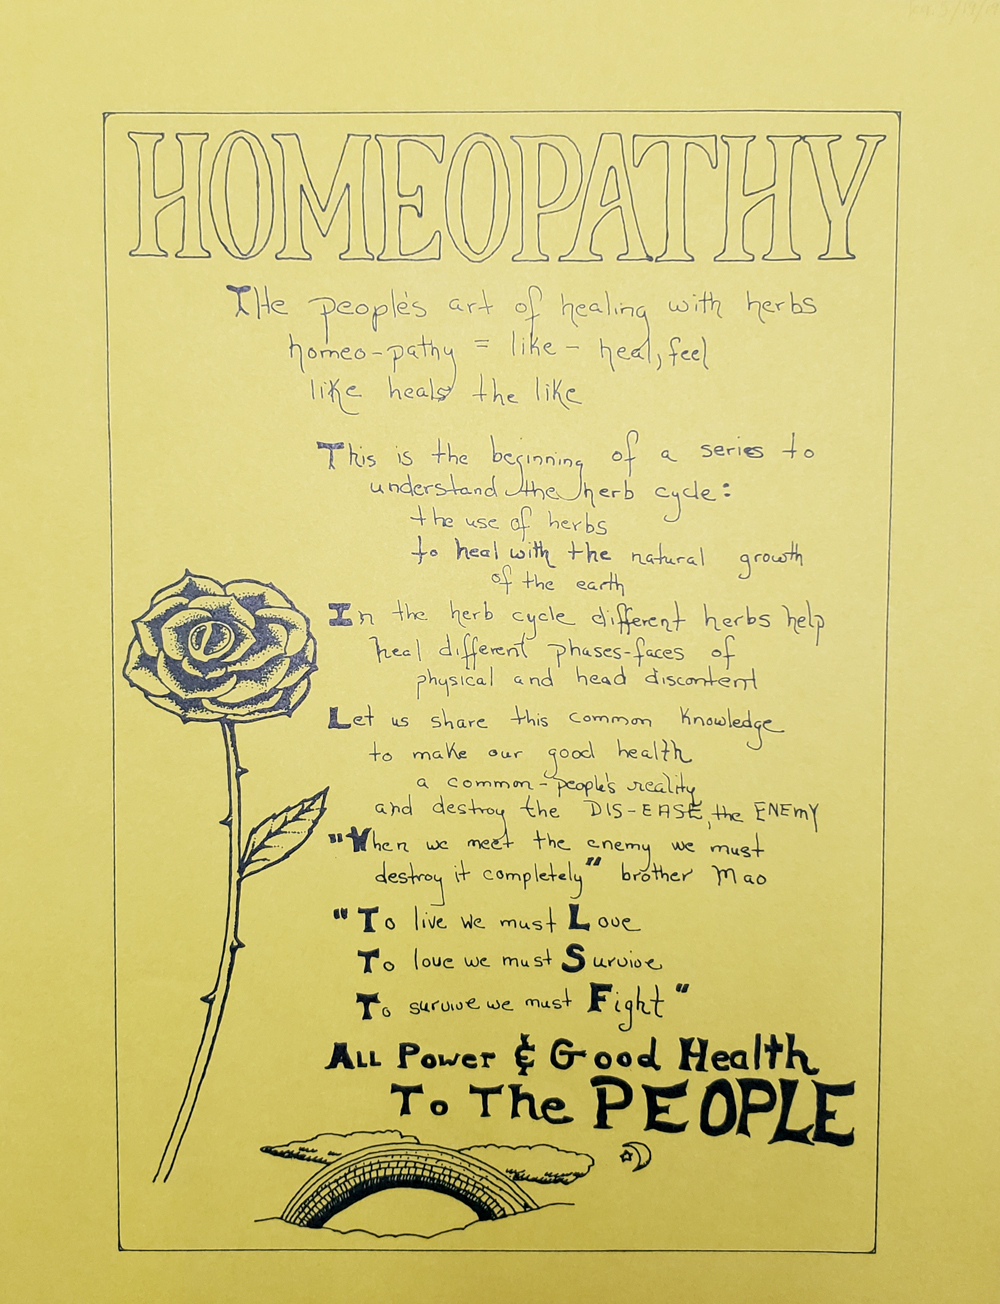 HOMEOPATHY
THe people's art of healing with herbs
homeo-pathy = like - heal, feel
like heals the like
This is the beginning of a series to
understand the herb cycle:
the use of herbs
to heal with the natural growth
of the earth
In the herb cycle different herbs help
heal different phases-faces of
physical and head discontent
Let us share this common knowledge
to make our good health
a common-people's reality
and destroy the DIS-EASE, the ENEMY
"When we meet the enemy we must
destroy it completely" brother Mao
"To live we must Love
To love we must Survive
To survive we must Fight"
ALL Power & Good Health
To The PEOPLE